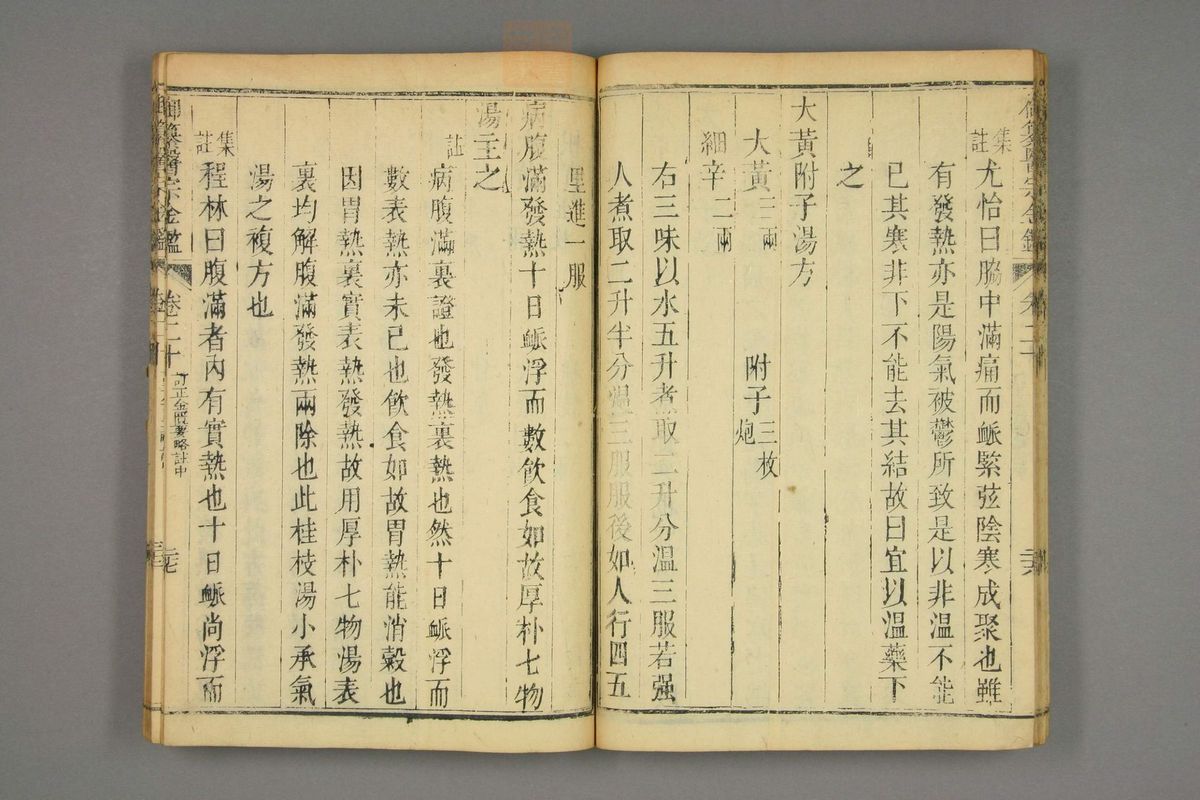 集註
尤怡曰脇中滿痛而䘑緊弦陰寒成聚也雖
有發熱亦是陽氣被鬱所致是以非溫不能
已其寒非下不能去其結故曰宜以溫藥下
之
大黃附子湯方
大黃三兩 附子三枚炮
細辛二兩
右三味以水五升煮取二升分溫三服若强
人煮取二升半分溫三服服後如人行四五
里進一服
病腹滿發熱十日䘑浮而數飲食如故厚朴七物
湯主之
註
病腹滿裏證也發熱裏熱也然十日䘑浮而
數表熱亦未已也飲食如故胃熱能消穀也
因胃熱裏實表熱發熱故用厚朴七物湯表
裏均解腹滿發熱兩除也此桂枝湯小承氣
湯之複方也
集註
程林曰腹滿者內有實熱也十日䘑尚浮而
御纂醫宗金鑑
卷二十
訂正金匱要略註中
二七